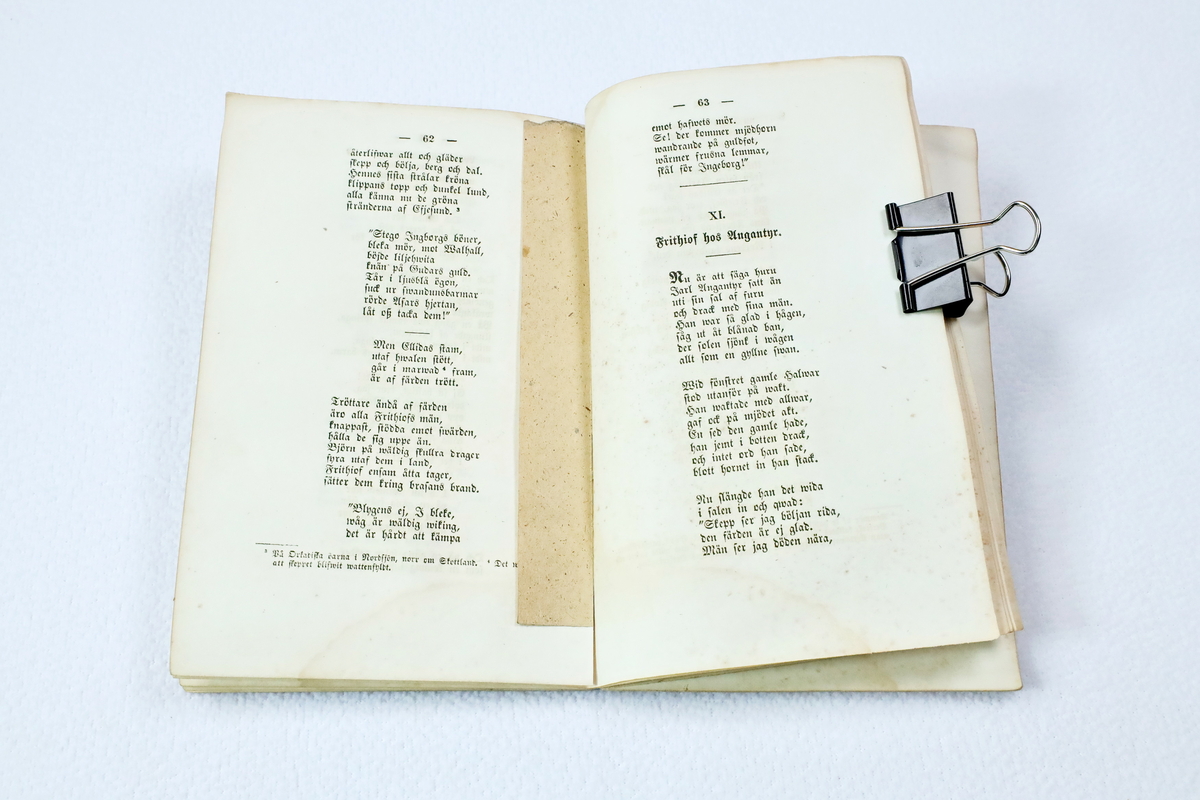 — 62 —
återlifwar allt och gläder
skepp och bölja, berg och dal.
Hennes sista strålar kröna
klippans topp och dunkel lund,
alla känna nu de gröna
stränderna af Efjesund. ³
"Stego Ingborgs böner,
bleka mör, mot Walhall,
böjde liljehwita
knän på Gudars guld.
Tår i ljusblå ögon,
suck ur swandunsbarmar
rörde Asars hjertan,
låt oß tacka dem!"
Men Ellidas stam,
utaf hwalen stött,
går i marwad ⁴ fram,
är af färden trött.
Tröttare ändå af färden
äro alla Frithiofs män,
knappast, stödda emot swärden,
hålla de sig uppe än.
Björn på wäldig skullra drager
fyra utaf dem i land,
Frithiof ensam åtta tager,
sätter dem kring brasans brand.
"Blygens ej, I bleke,
wåg är wäldig wiking,
det är hårdt att kämpa
³ På Orkadiska öarna i Nordsjön, norr om Skottland. ⁴ Det
att skeppet blifwit wattenfyldt.
— 63 —
emot hafwets mör.
Se! der kommer mjödhorn
wandrande på guldfot,
wärmer frusna lemmar,
skål för Ingeborg!"
XI.
Frithiof hos Angantyr.
Nu är att säga huru
Jarl Angantyr satt än
uti sin sal af furu
och drack med sina män.
Han war så glad i hågen,
såg ut åt blånad ban,
der solen sjönk i wågen
allt som en gyllne swan.
Wid fönstret gamle Halwar
stod utanför på wakt.
Han waktade med allwar,
gaf ock på mjödet akt.
En sed den gamle hade,
han jemt i botten drack,
och intet ord han sade,
blott hornet in han stack.
Nu slängde han det wida
i salen in och qwad:
"Skepp ser jag böljan rida,
den färden är ej glad.
Män ser jag döden nära,